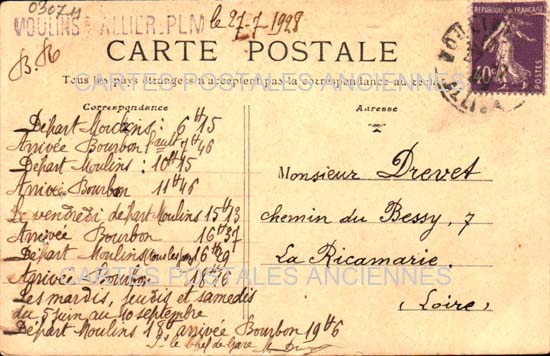 03074
MOULINS ALLIER-PLM
le 27-7-1928
RÉPUBLIQUE FRANÇAISE
40c
POSTES
CARTE POSTALE
Tous les pays étrangers n'acceptent pas la correspondance au recto
CARTES POSTALES ANCIENNES
Correspondance
Départ Moulins : 6h15
Arrivée Bourbon 7h46
Départ Moulins : 10h15
Arrivée Bourbon 11h46
Le vendredi départ Moulins 15h13
Arrivée Bourbon 16h37
Départ Moulins (tous les jours) 16h29
Arrivée Bourbon
Les mardis, jeudis et samedis
du 5 juin au 10 septembre
Départ Moulins 18h arrivée Bourbon 19h6
Le chef de Gare
Adresse
Monsieur Drevet
chemin du Bessy, 7
La Ricamarie.
(Loire)
CARTES POSTALES ANCIENNES